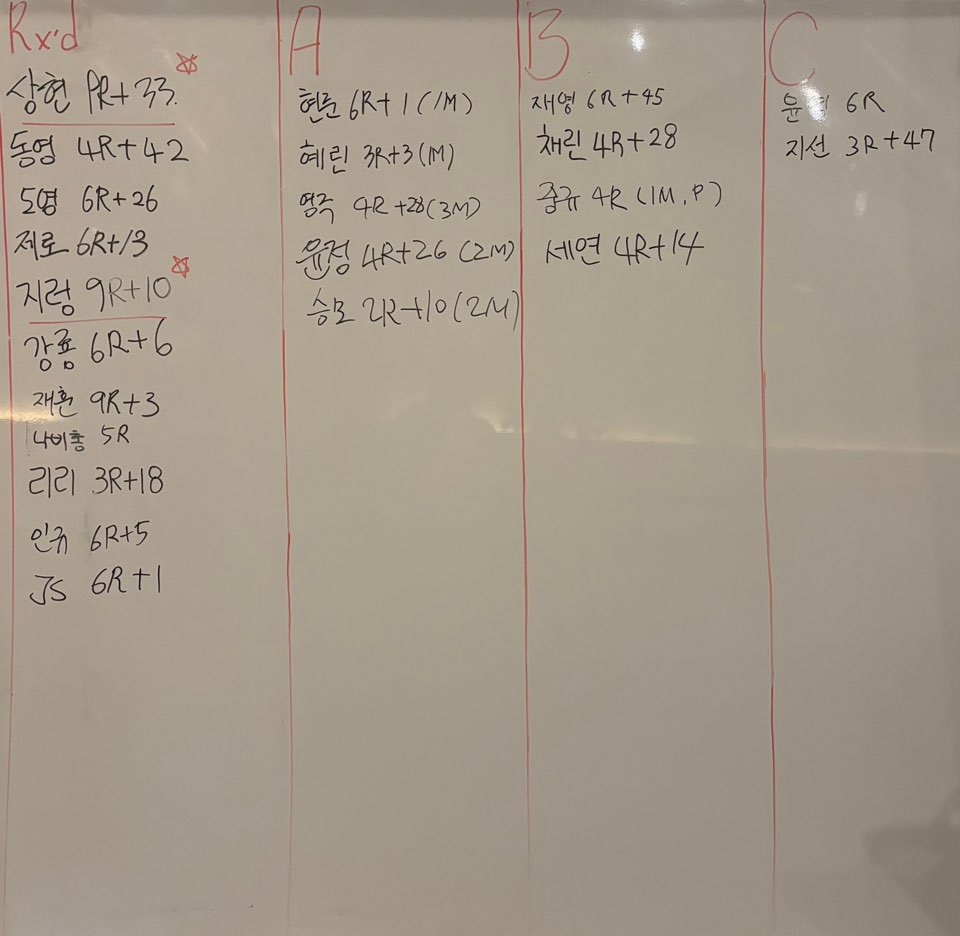 Rx'd
상현 9R+33
동영 4R+42
도영 6R+26
제로 6R+13
지렁 9R+10
강룡 6R+6
재환 9R+3
나비홍 5R
리리 3R+18
인규 6R+5
JS 6R+1
A
현준 6R+1 (1M)
혜린 3R+3 (1M)
4R+28 (3M)
윤정 4R+26 (2M)
승모 2R+10 (2M)
B
재영 6R+45
채린 4R+28
중규 4R (1M, P)
세연 4R+14
C
6R
지선 3R+47